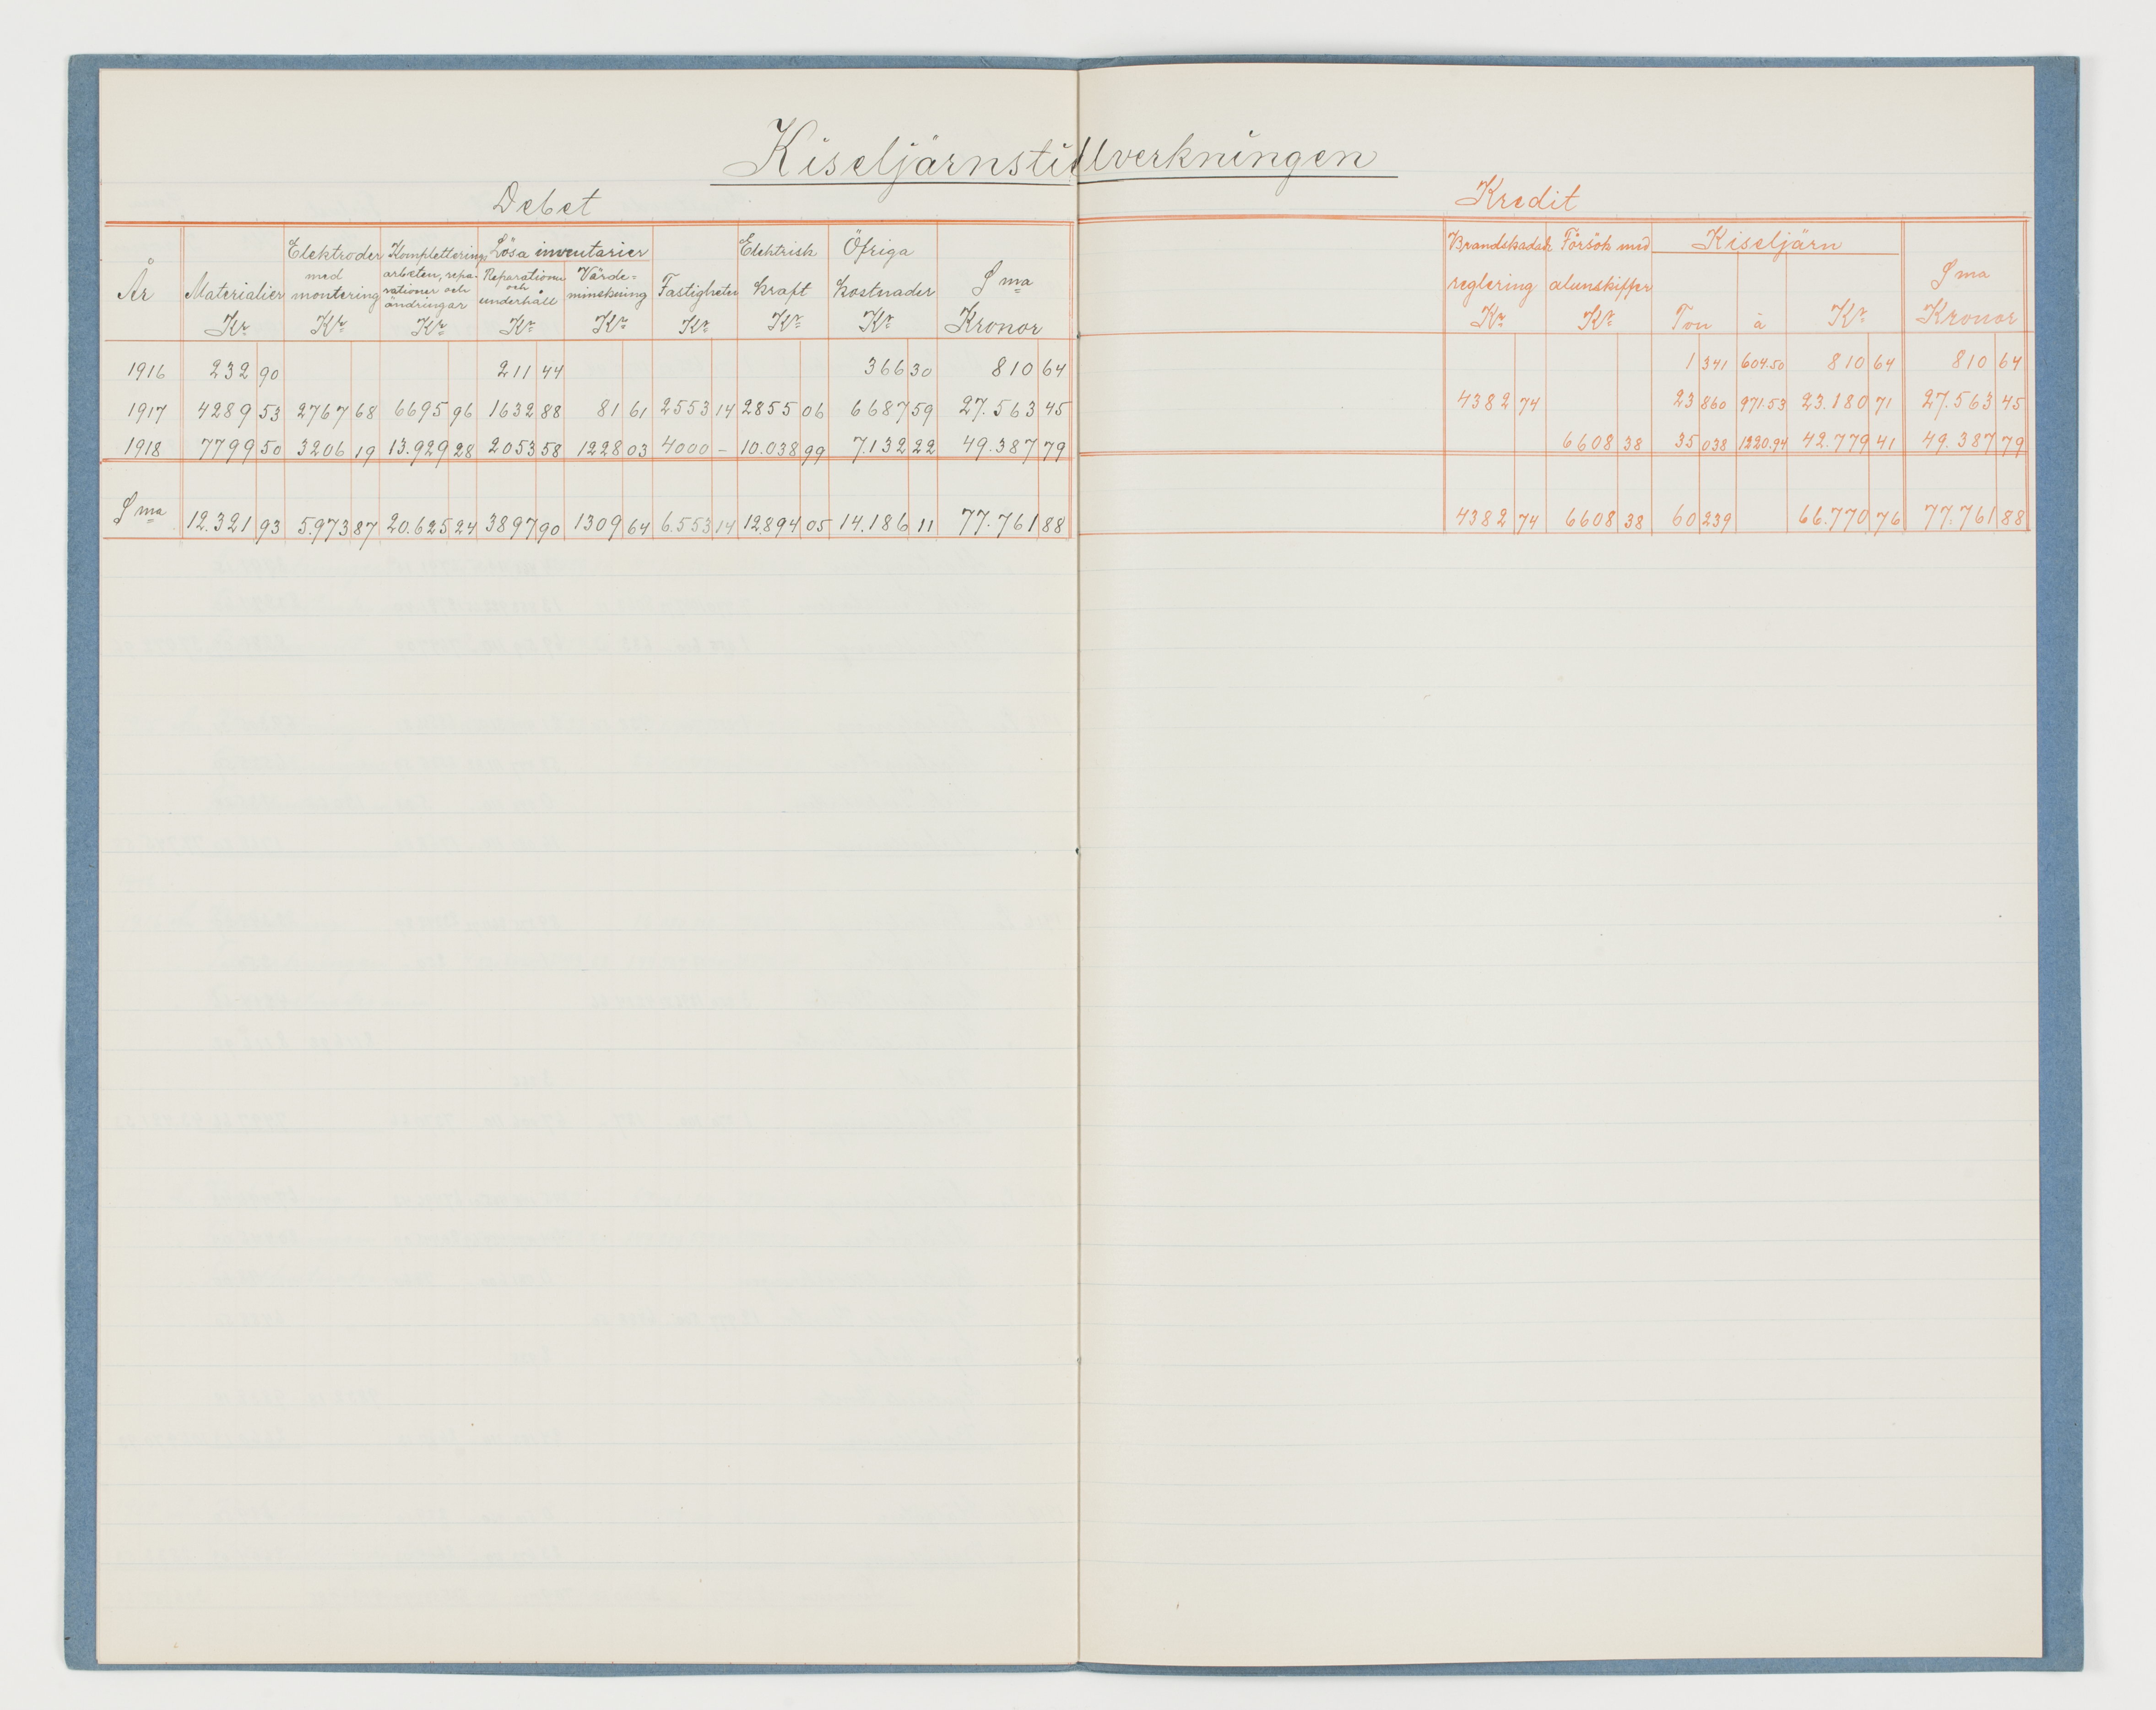 Kiseljärnstillverkningen
Debet
Kredit
År Materialier Kr Elektroder med montering Kr Kompletteringsarbeten, reparationer och ändringar Kr Lösa inventarier Reparationer och underhåll Kr Värdeminskning Kr Fastigheter Kr Elektrisk kraft Kr Öfriga kostnader Kr Sma Kronor
Brandskadereglering Kr Försök med alunskiffer Kr Kiseljärn Ton à Kr Sma Kronor
1916 232 90 211 44 366 30 810 64 1 341 604.50 810 64 810 64
1917 4289 53 2767 68 6695 96 1632 88 81 61 2553 14 2855 06 6687 59 27.563 45 4382 74 23 860 971.53 23.180 71 27.563 45
1918 7799 50 3206 19 13.929 28 2053 58 1228 03 4000 – 10.038 99 7.132 22 49.387 79 6608 38 35 038 1220.94 42.779 41 49.387 79
Sma 12.321 93 5.973 87 20.625 24 3897 90 1309 64 6.553 14 12.894 05 14.186 11 77.761 88 4382 74 6608 38 60 239 66.770 76 77.761 88